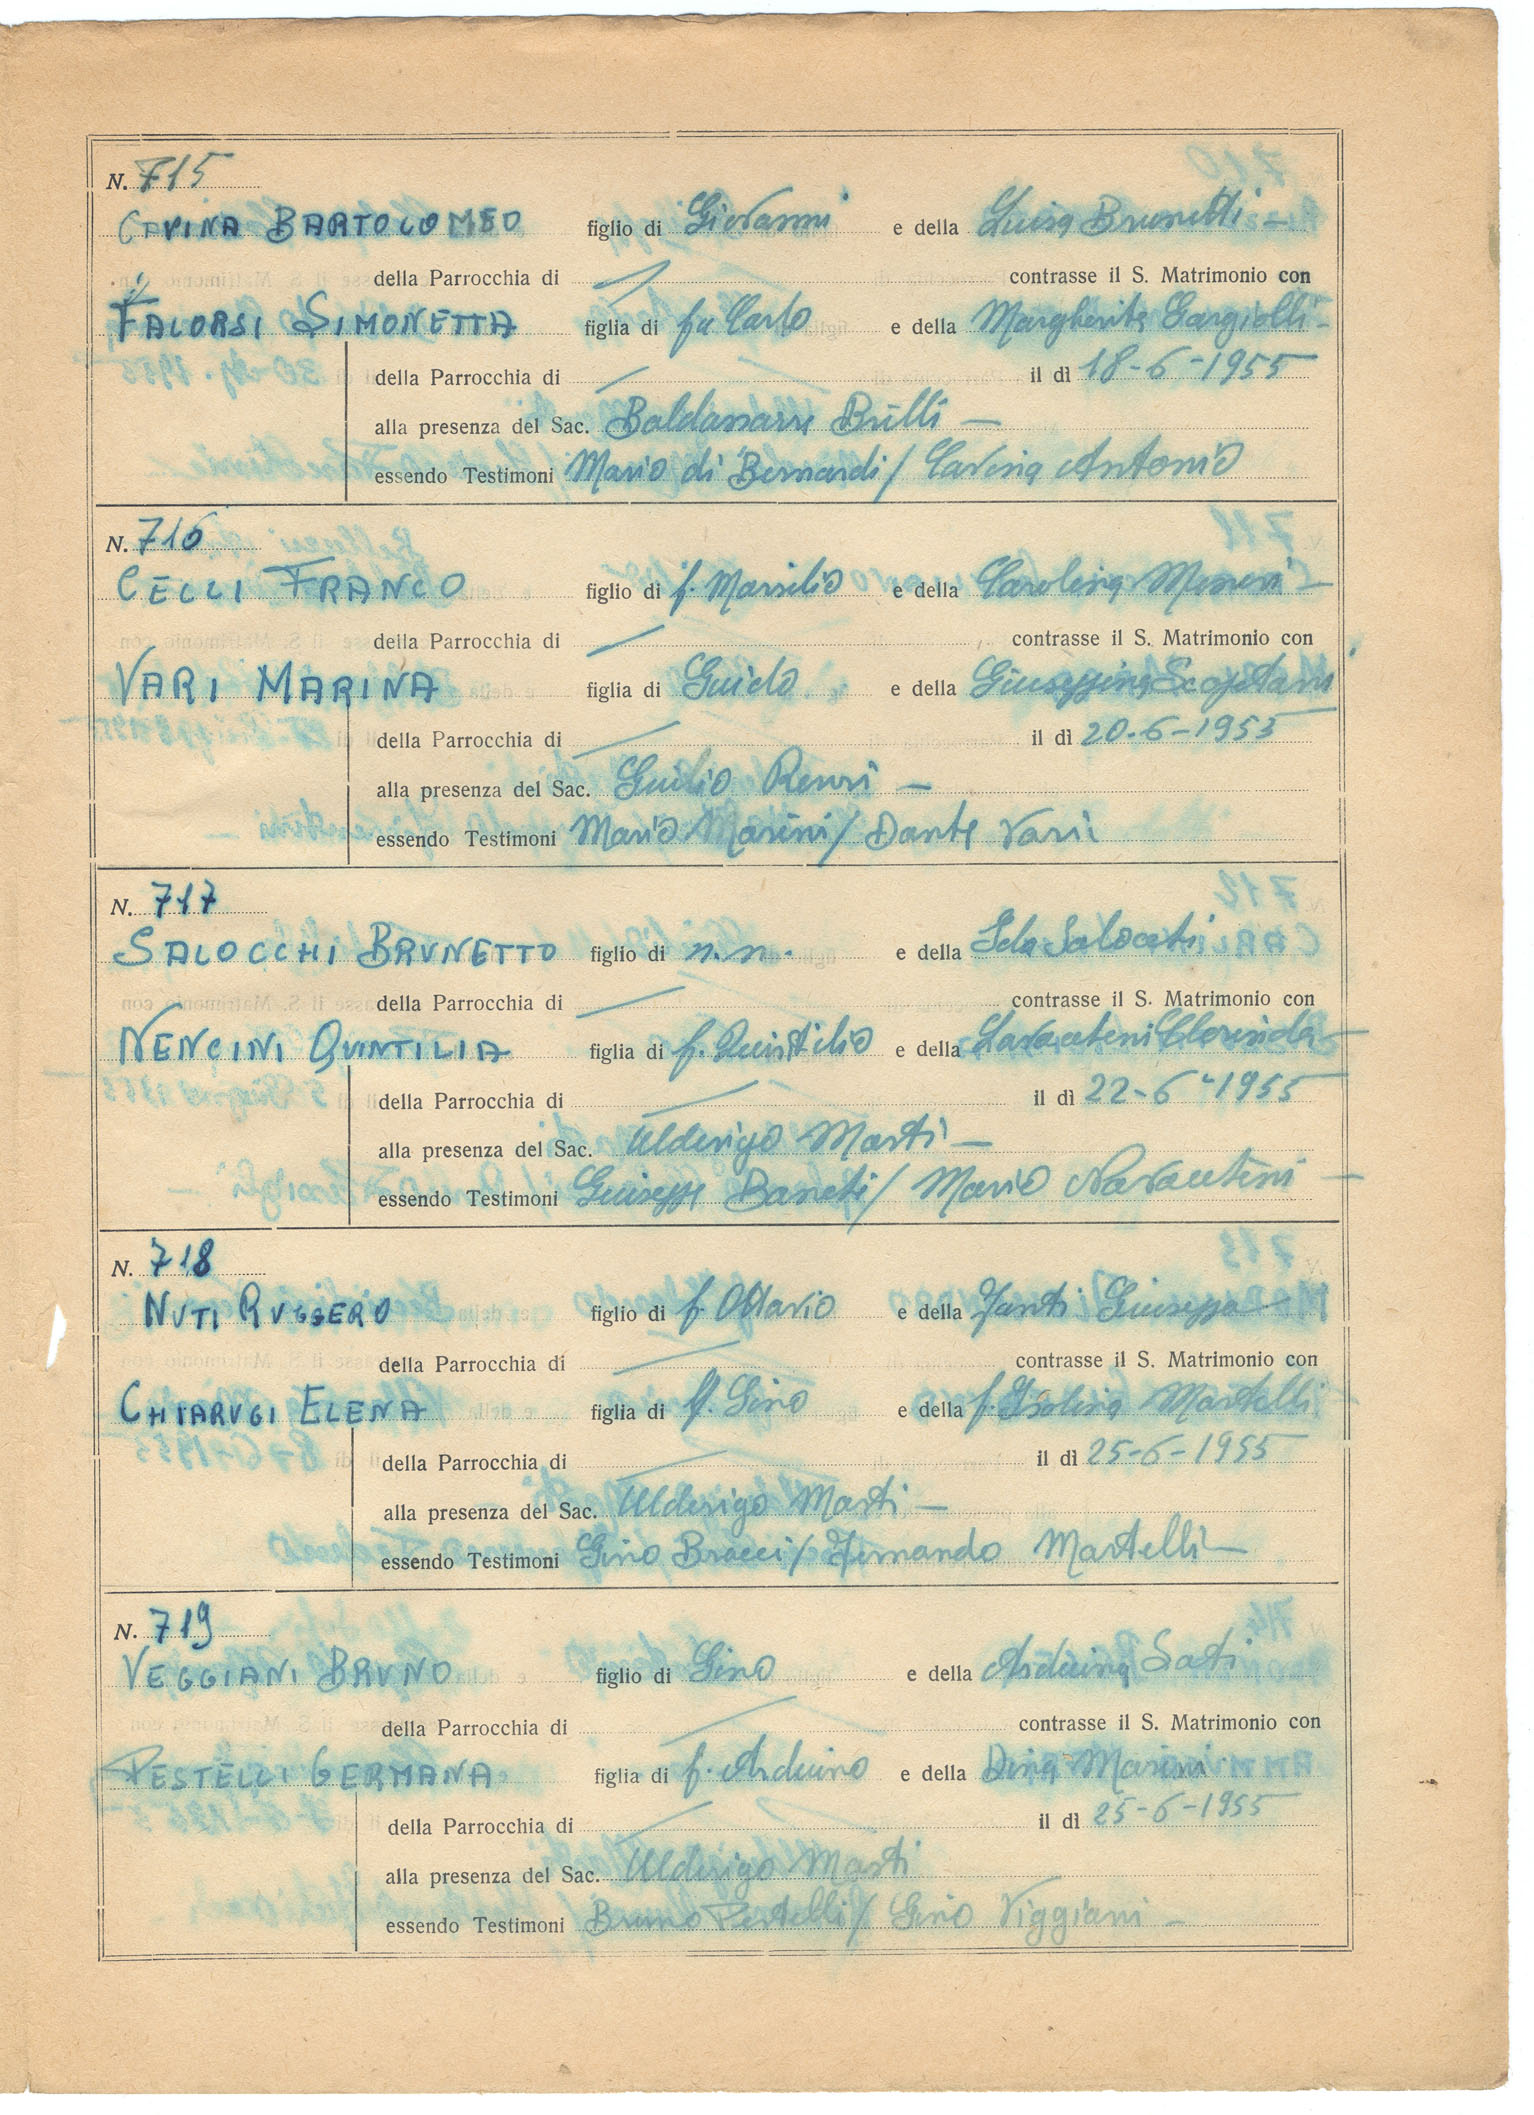 N. 715
CAVINA BARTOLOMEO figlio di Giovanni e della Luisa Brunetti –
della Parrocchia di / contrasse il S. Matrimonio con
FALORSI SIMONETTA figlia di fu Carlo e della Margherita Gargiolli –
della Parrocchia di / il dì 18-6-1955
alla presenza del Sac. Baldassarre Brilli –
essendo Testimoni Mario di Bernardi / Cavina Antonio
N. 716
CELLI FRANCO figlio di f. Marsilio e della Carolina
della Parrocchia di / contrasse il S. Matrimonio con
VARI MARINA figlia di Guido e della Giuseppina
della Parrocchia di / il dì 20-6-1955
alla presenza del Sac. Giulio Renzi –
essendo Testimoni Mario Marini / Dante Vari
N. 717
SALOCCHI BRUNETTO figlio di n.n. e della Ida
della Parrocchia di / contrasse il S. Matrimonio con
NENCINI QUINTILIA figlia di f. Quintilio e della Clorinda –
della Parrocchia di / il dì 22-6-1955
alla presenza del Sac. Ulderigo Marti –
essendo Testimoni Giuseppe / Mario
N. 718
NUTI RUGGERO figlio di f. Ottavio e della Giuseppa
della Parrocchia di / contrasse il S. Matrimonio con
CHIARUGI ELENA figlia di f. Gino e della f. Isolina Martelli
della Parrocchia di / il dì 25-6-1955
alla presenza del Sac. Ulderigo Marti –
essendo Testimoni Gino Bracci / Fernando Martelli –
N. 719
VEGGIANI BRUNO figlio di Gino e della Arduina Sati
della Parrocchia di / contrasse il S. Matrimonio con
PESTELLI GERMANA figlia di f. Arduino e della Dina Marini
della Parrocchia di / il dì 25-6-1955
alla presenza del Sac. Ulderigo Marti
essendo Testimoni Bruno Pestelli / Gino Viggiani –